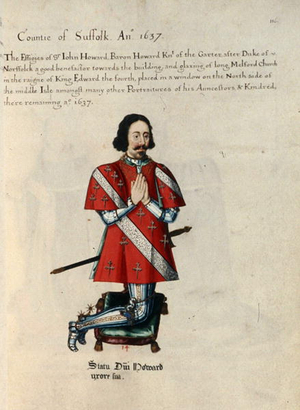 Countie of Suffolk. Anº. 1637.
The Effigies of Sr. Iohn Howard, Baron Howard Knt. of the Garter, after Duke of
Norffolk a good benefactor towards the building, and glasing of long Melford Church
in the raigne of King Edward the fourth, placed in a window on the North side of
the middle Isle amongst many other Portraitures of his Ancestors & Kindred,
there remaining aº. 1637.
Statu Dni Howard
uxore sua.